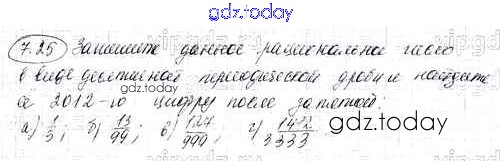 gdz.today
7.25 Запишите данное рациональное число
в виде десятичной периодической дроби и найдите
её 2012-ю цифру после запятой:
а) 1/3; б) 13/99; в) 127/999; г) 3 1472/3333.
gdz.today
gdz.today